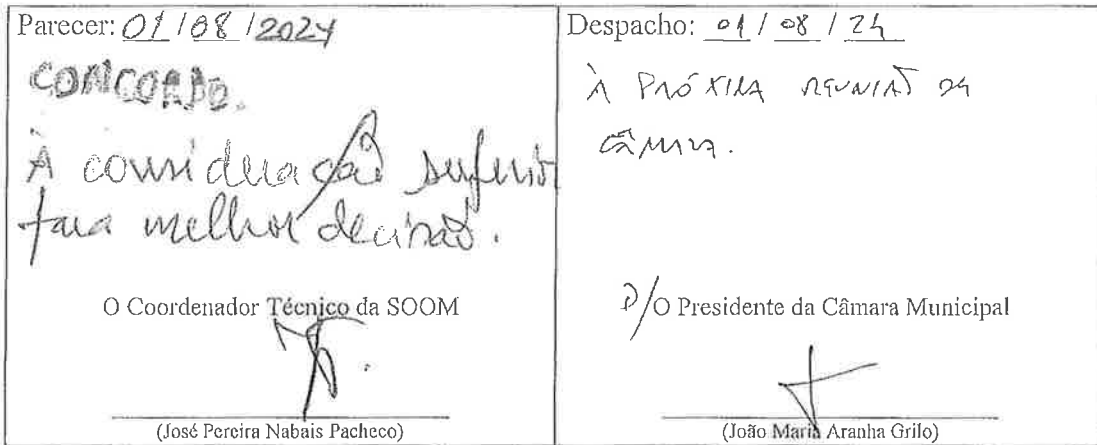 Parecer: 01/08/2024
CONCORDO.
À consideração superior
para melhor decisão.
O Coordenador Técnico da SOOM
(José Pereira Nabais Pacheco)
Despacho: 01/08/24
À PRÓXIMA REUNIÃO DA
CÂMARA.
P/O Presidente da Câmara Municipal
(João Maria Aranha Grilo)